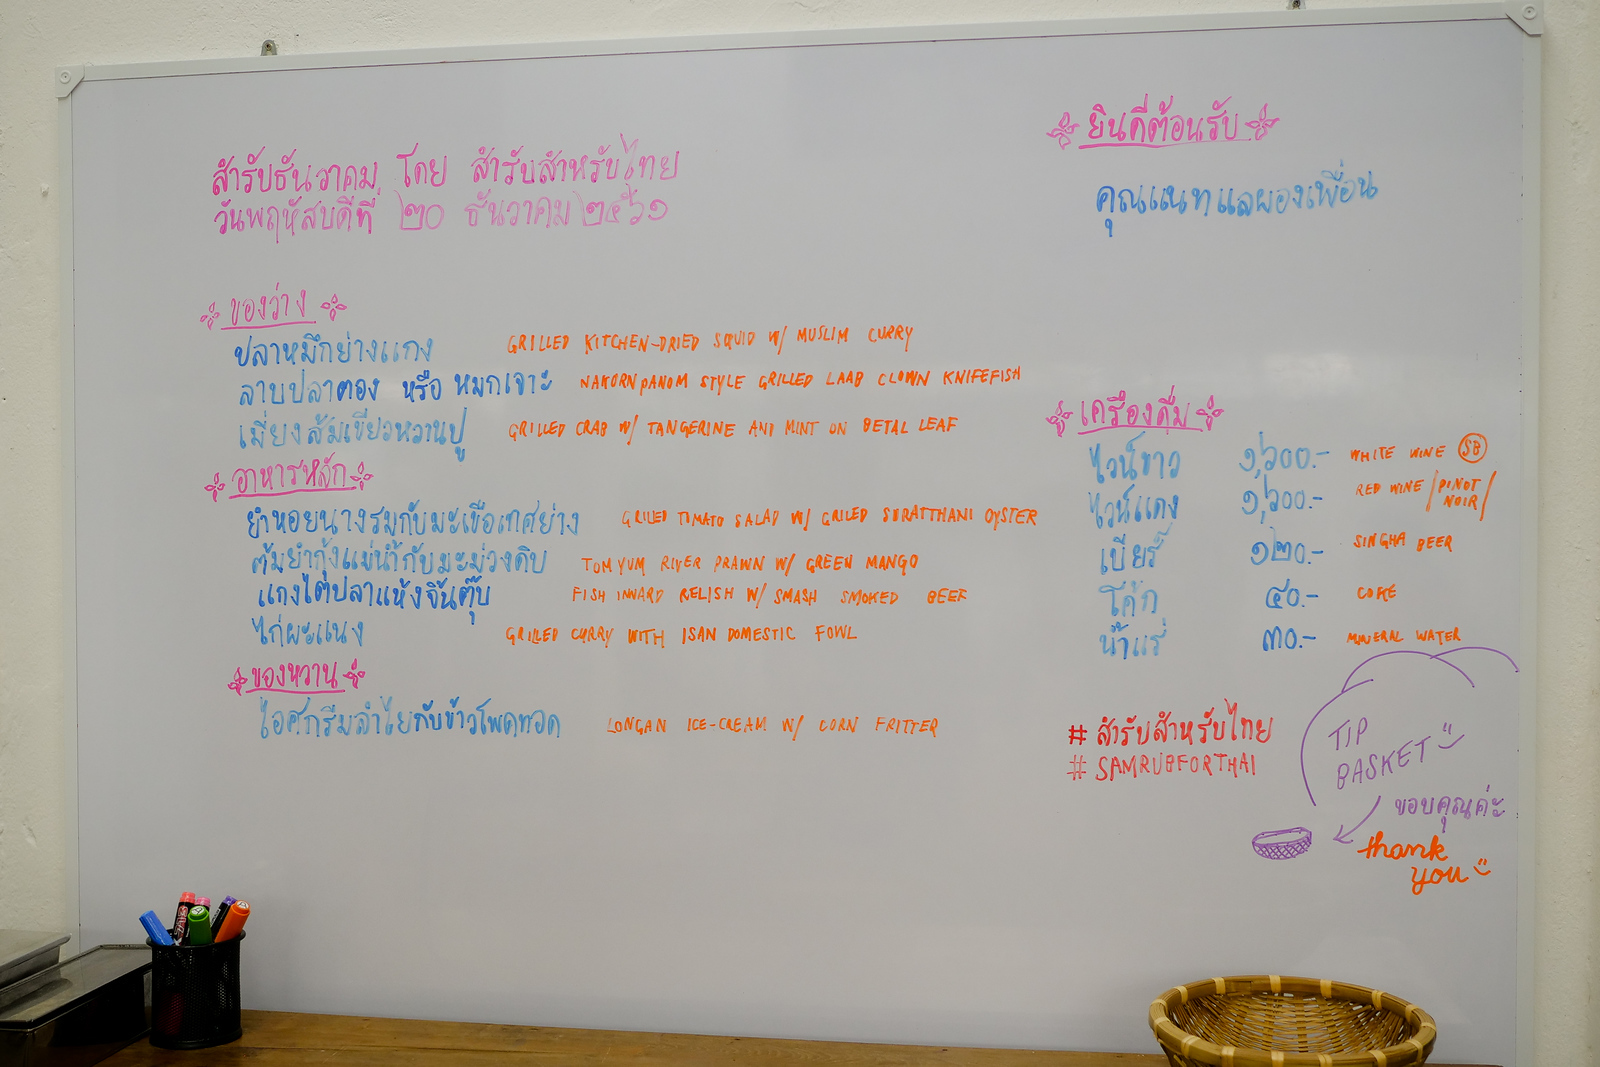 สำรับธันวาคม โดย สำรับสำหรับไทย
วันพฤหัสบดีที่ ๒๐ ธันวาคม ๒๕๖๑
ของว่าง
ปลาหมึกย่างแกง GRILLED KITCHEN-DRIED SQUID W/ MUSLIM CURRY
ลาบปลาตอง หรือ หมกเจาะ NAKORNPANOM STYLE GRILLED LAAB CLOWN KNIFEFISH
เมี่ยงส้มเขียวหวานปู GRILLED CRAB W/ TANGERINE AND MINT ON BETAL LEAF
อาหารหลัก
ยำหอยนางรมกับมะเขือเทศย่าง GRILLED TOMATO SALAD W/ GRILED SURATTHANI OYSTER
ต้มยำกุ้งแม่น้ำกับมะม่วงดิบ TOM YUM RIVER PRAWN W/ GREEN MANGO
แกงไตปลาแห้งจิ๊นตุ๊บ FISH INWARD RELISH W/ SMASH SMOKED BEEF
ไก่ผะแนง GRILLED CURRY WITH ISAN DOMESTIC FOWL
ของหวาน
ไอศกรีมลำไยกับข้าวโพดทอด LONGAN ICE-CREAM W/ CORN FRITTER
ยินดีต้อนรับ
คุณแนทแลผองเพื่อน
เครื่องดื่ม
ไวน์ขาว ๑,๖๐๐.- WHITE WINE SB
ไวน์แดง ๑,๖๐๐.- RED WINE /PINOT NOIR/
เบียร์ ๑๒๐.- SINGHA BEER
โค้ก ๔๐.- COKE
น้ำแร่ ๓๐.- MINERAL WATER
# สำรับสำหรับไทย
# SAMRUBFORTHAI
TIP
BASKET
ขอบคุณค่ะ
thank
you